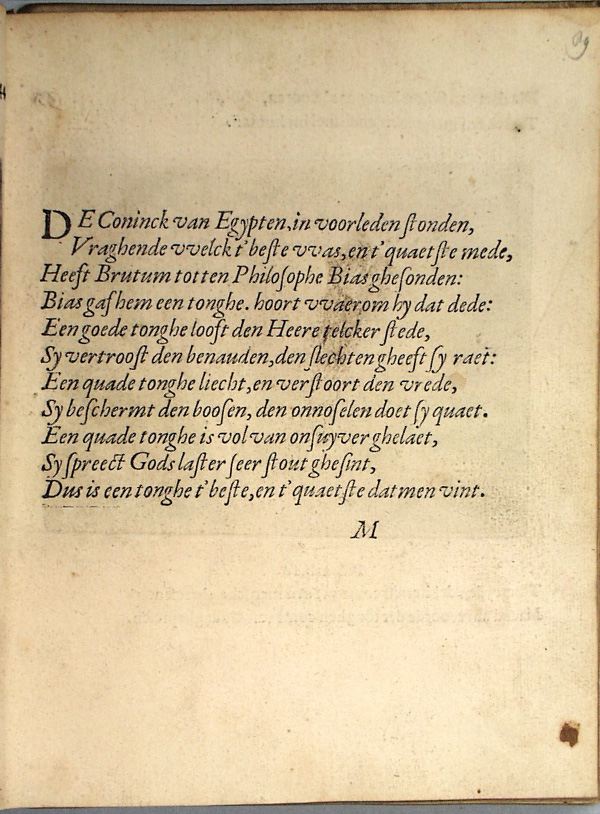 89
DE Coninck van Egypten, in voorleden stonden,
Vraghende vvelck t'beste vvas, en t'quaetste mede,
Heeft Brutum tot ten Philosophe Bias ghesonden:
Bias gaf hem een tonghe. hoort vvaerom hy dat dede:
Een goede tonghe looft den Heere telcker stede,
Sy vertroost den benauden, den slechten gheeft sy raet:
Een quade tonghe liecht, en verstoort den vrede,
Sy beschermt den boosen, den onnoselen doet sy quaet.
Een quade tonghe is vol van onsuyver ghelaet,
Sy spreect Gods laster seer stout ghesint,
Dus is een tonghe t'beste, en t'quaetste datmen vint.
M